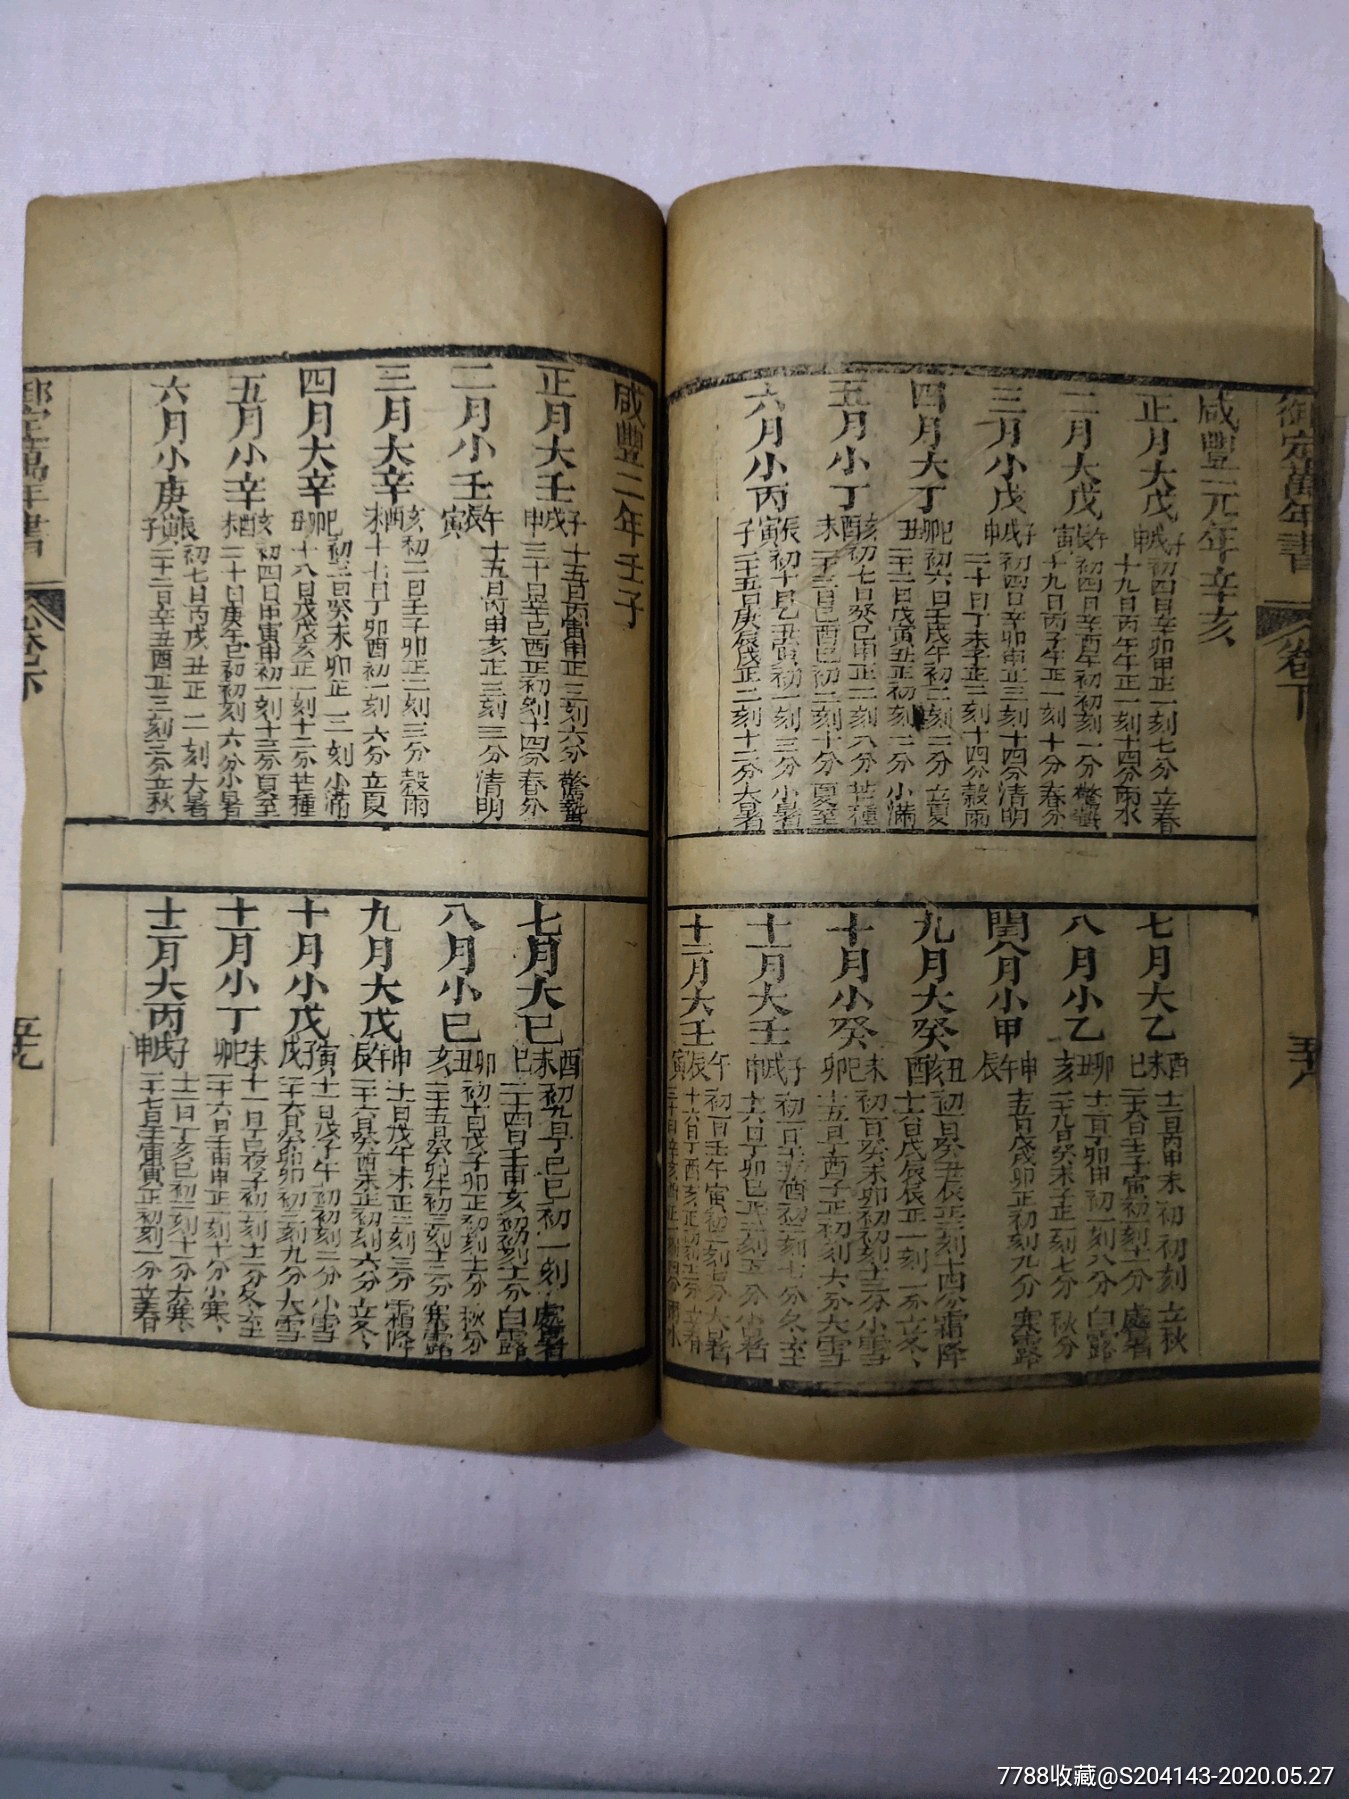 御定萬年書
卷下
咸豐元年辛亥
正月大戊
子戌申
初四日辛卯申正一刻七分立春
十九日丙午午正一刻十四分雨水
二月大戊
午辰寅
初四日辛酉午初初刻一分驚蟄
十九日丙子午正一刻十分春分
三月小戊
子戌申
初四日辛卯申正三刻十四分清明
二十日丁未子正三刻十四分穀雨
四月大丁
巳卯丑
初六日壬戌午初二刻二分立夏
二十二日戊寅丑正初刻二分小滿
五月小丁
亥酉未
初七日癸巳申正一刻八分芒種
二十三日己酉巳初二刻十分夏至
六月小丙
辰寅子
初十日乙丑寅初一刻三分小暑
二十五日庚辰戌正二刻十二分大暑
七月大乙
酉未巳
十二日丙申未初初刻立秋
二十八日壬子寅初一刻十分處暑
八月小乙
卯丑亥
二十九日癸未子正二刻七分秋分
閏八月小甲
申午辰
十五日戊戌卯正初刻九分寒露
九月大癸
丑亥酉
初一日癸丑辰正三刻十四分霜降
十六日戊辰辰正一刻一分立冬
十月小癸
未巳卯
十二月大壬
午辰寅
咸豐二年壬子
正月大壬
子戌申
十五日丙寅申正三刻六分驚蟄
三十日辛巳酉正初刻十四分春分
二月小壬
午辰寅
十五日丙申亥正三刻三分清明
三月大辛
亥酉未
初二日壬子卯正二刻三分穀雨
十七日丁卯酉初一刻六分立夏
四月大辛
巳卯丑
初三日癸未卯正二刻小滿
十八日戊戌亥正一刻十二分芒種
五月小辛
亥酉未
初四日甲寅申初一刻十三分夏至
二十日庚午巳初初刻六分小暑
六月小庚
辰寅子
初七日丙戌丑正一二刻大暑
二十二日辛丑酉正三刻三分立秋
七月大己
酉未巳
初九日丁巳巳初一刻處暑
二十四日壬申亥初初刻十分白露
八月小己
卯丑亥
初十日戊子卯正初刻十分秋分
二十五日癸卯午初三刻十二分寒露
九月大戊
申午辰
十一日戊午未正二刻三分霜降
二十六日癸酉未正初刻六分立冬
十月小戊
寅子戌
十一日戊子午初初刻二分小雪
二十六日癸卯卯初二刻九分大雪
十一月小丁
未巳卯
二十六日壬申申正一刻十分小寒
十二月大丙
子戌申
十二日丁亥巳初二刻十一分大寒
二十七日壬寅寅正初刻一分立春
御定萬年書
卷下
五九
7788收藏@S204143-2020.05.27